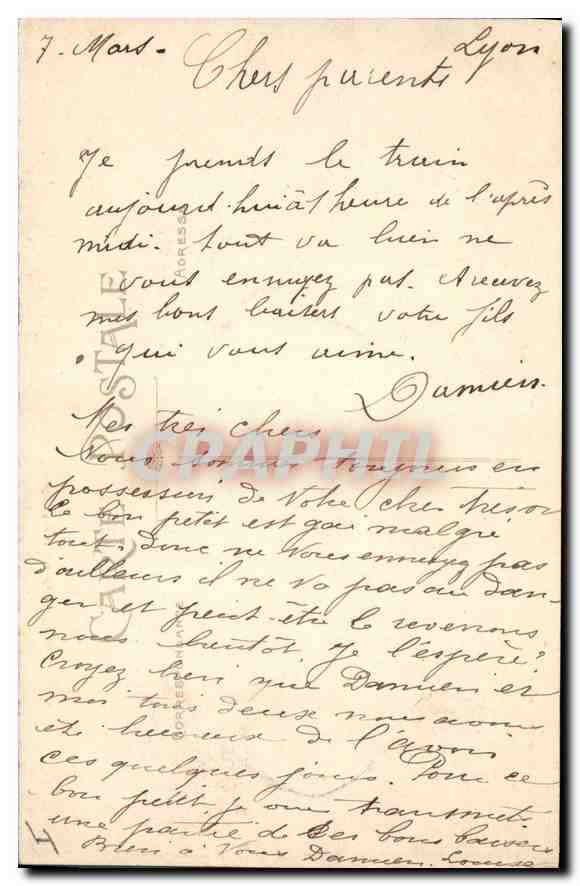 7. Mars. Lyon
Chers parents
Je prends le train
aujourd'hui à 1 heure de l'après
midi. tout va bien ne
vous ennuyez pas. recevez
mes bons baisers votre fils
qui vous aime.
Damien.
Mes très chers
Nous sommes toujours en
possession de votre cher trésor
le bon petit est gai malgré
tout, donc ne vous ennuyez pas
d'ailleurs il ne va pas au dan-
ger et peut-être le reverrons
nous bientôt, je l'espère?
Croyez bien que Damien et
moi tous deux nous avons
été heureux de l'avoir
ces quelques jours. Pour ce
bon petit je vous transmets
une partie de ses bons baisers
Bien à Vous Damien. Louise
4
CARTE POSTALE
CORRESPONDANCE
ADRESSE
CPAPHIL